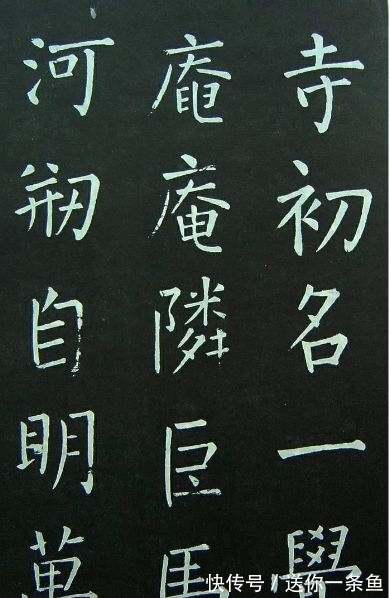 寺初名一學
庵庵隣巨馬
河剙自明萬
快传号/送你一条鱼